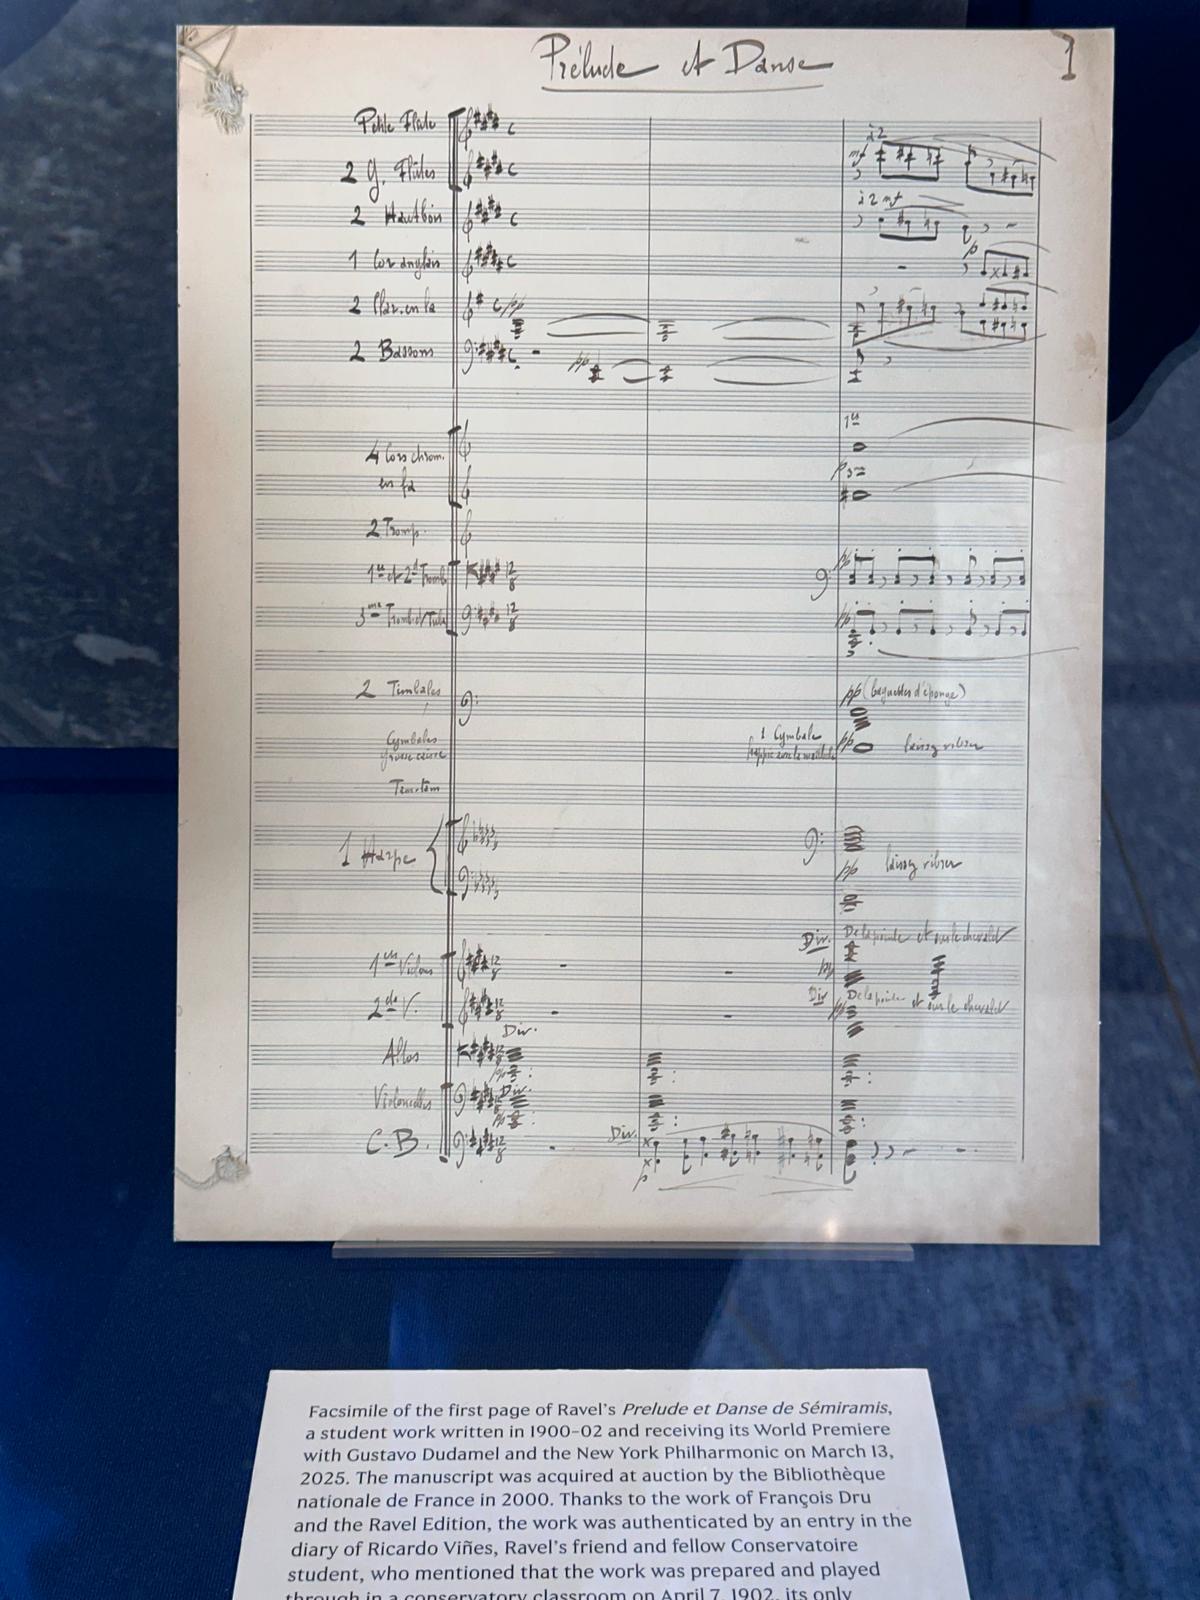 Prélude et Danse
1
Petite Flûte
à 2
2 G. Flûtes
mf
2 Hautbois
à 2 mf
1 Cor anglais
p
2 Clar. en la
pp
2 Bassons
pp
1er
4 Cors chrom.
en fa
p
2 Tromp.
1er et 2d Tromb
12
8
pp
3me Tromb et Tuba
12
8
pp
2 Timbales
pp (baguettes d'éponge)
Cymbales
grosse caisse
1 Cymbale
pp
laissez vibrer
Tam-tam
1 Harpe
pp
laissez vibrer
Div.
De la pointe et sur le chevalet
1ers Violons
12
8
2ds V.
12
8
Div
De la pointe et sur le chevalet
pp
Div.
Altos
12
8
pp
Violoncelles
Div.
12
8
pp
C.B.
12
8
Div.
p
Facsimile of the first page of Ravel's Prelude et Danse de Sémiramis,
a student work written in 1900-02 and receiving its World Premiere
with Gustavo Dudamel and the New York Philharmonic on March 13,
2025. The manuscript was acquired at auction by the Bibliothèque
nationale de France in 2000. Thanks to the work of François Dru
and the Ravel Edition, the work was authenticated by an entry in the
diary of Ricardo Viñes, Ravel's friend and fellow Conservatoire
student, who mentioned that the work was prepared and played
through in a conservatory classroom on April 7, 1902, its only